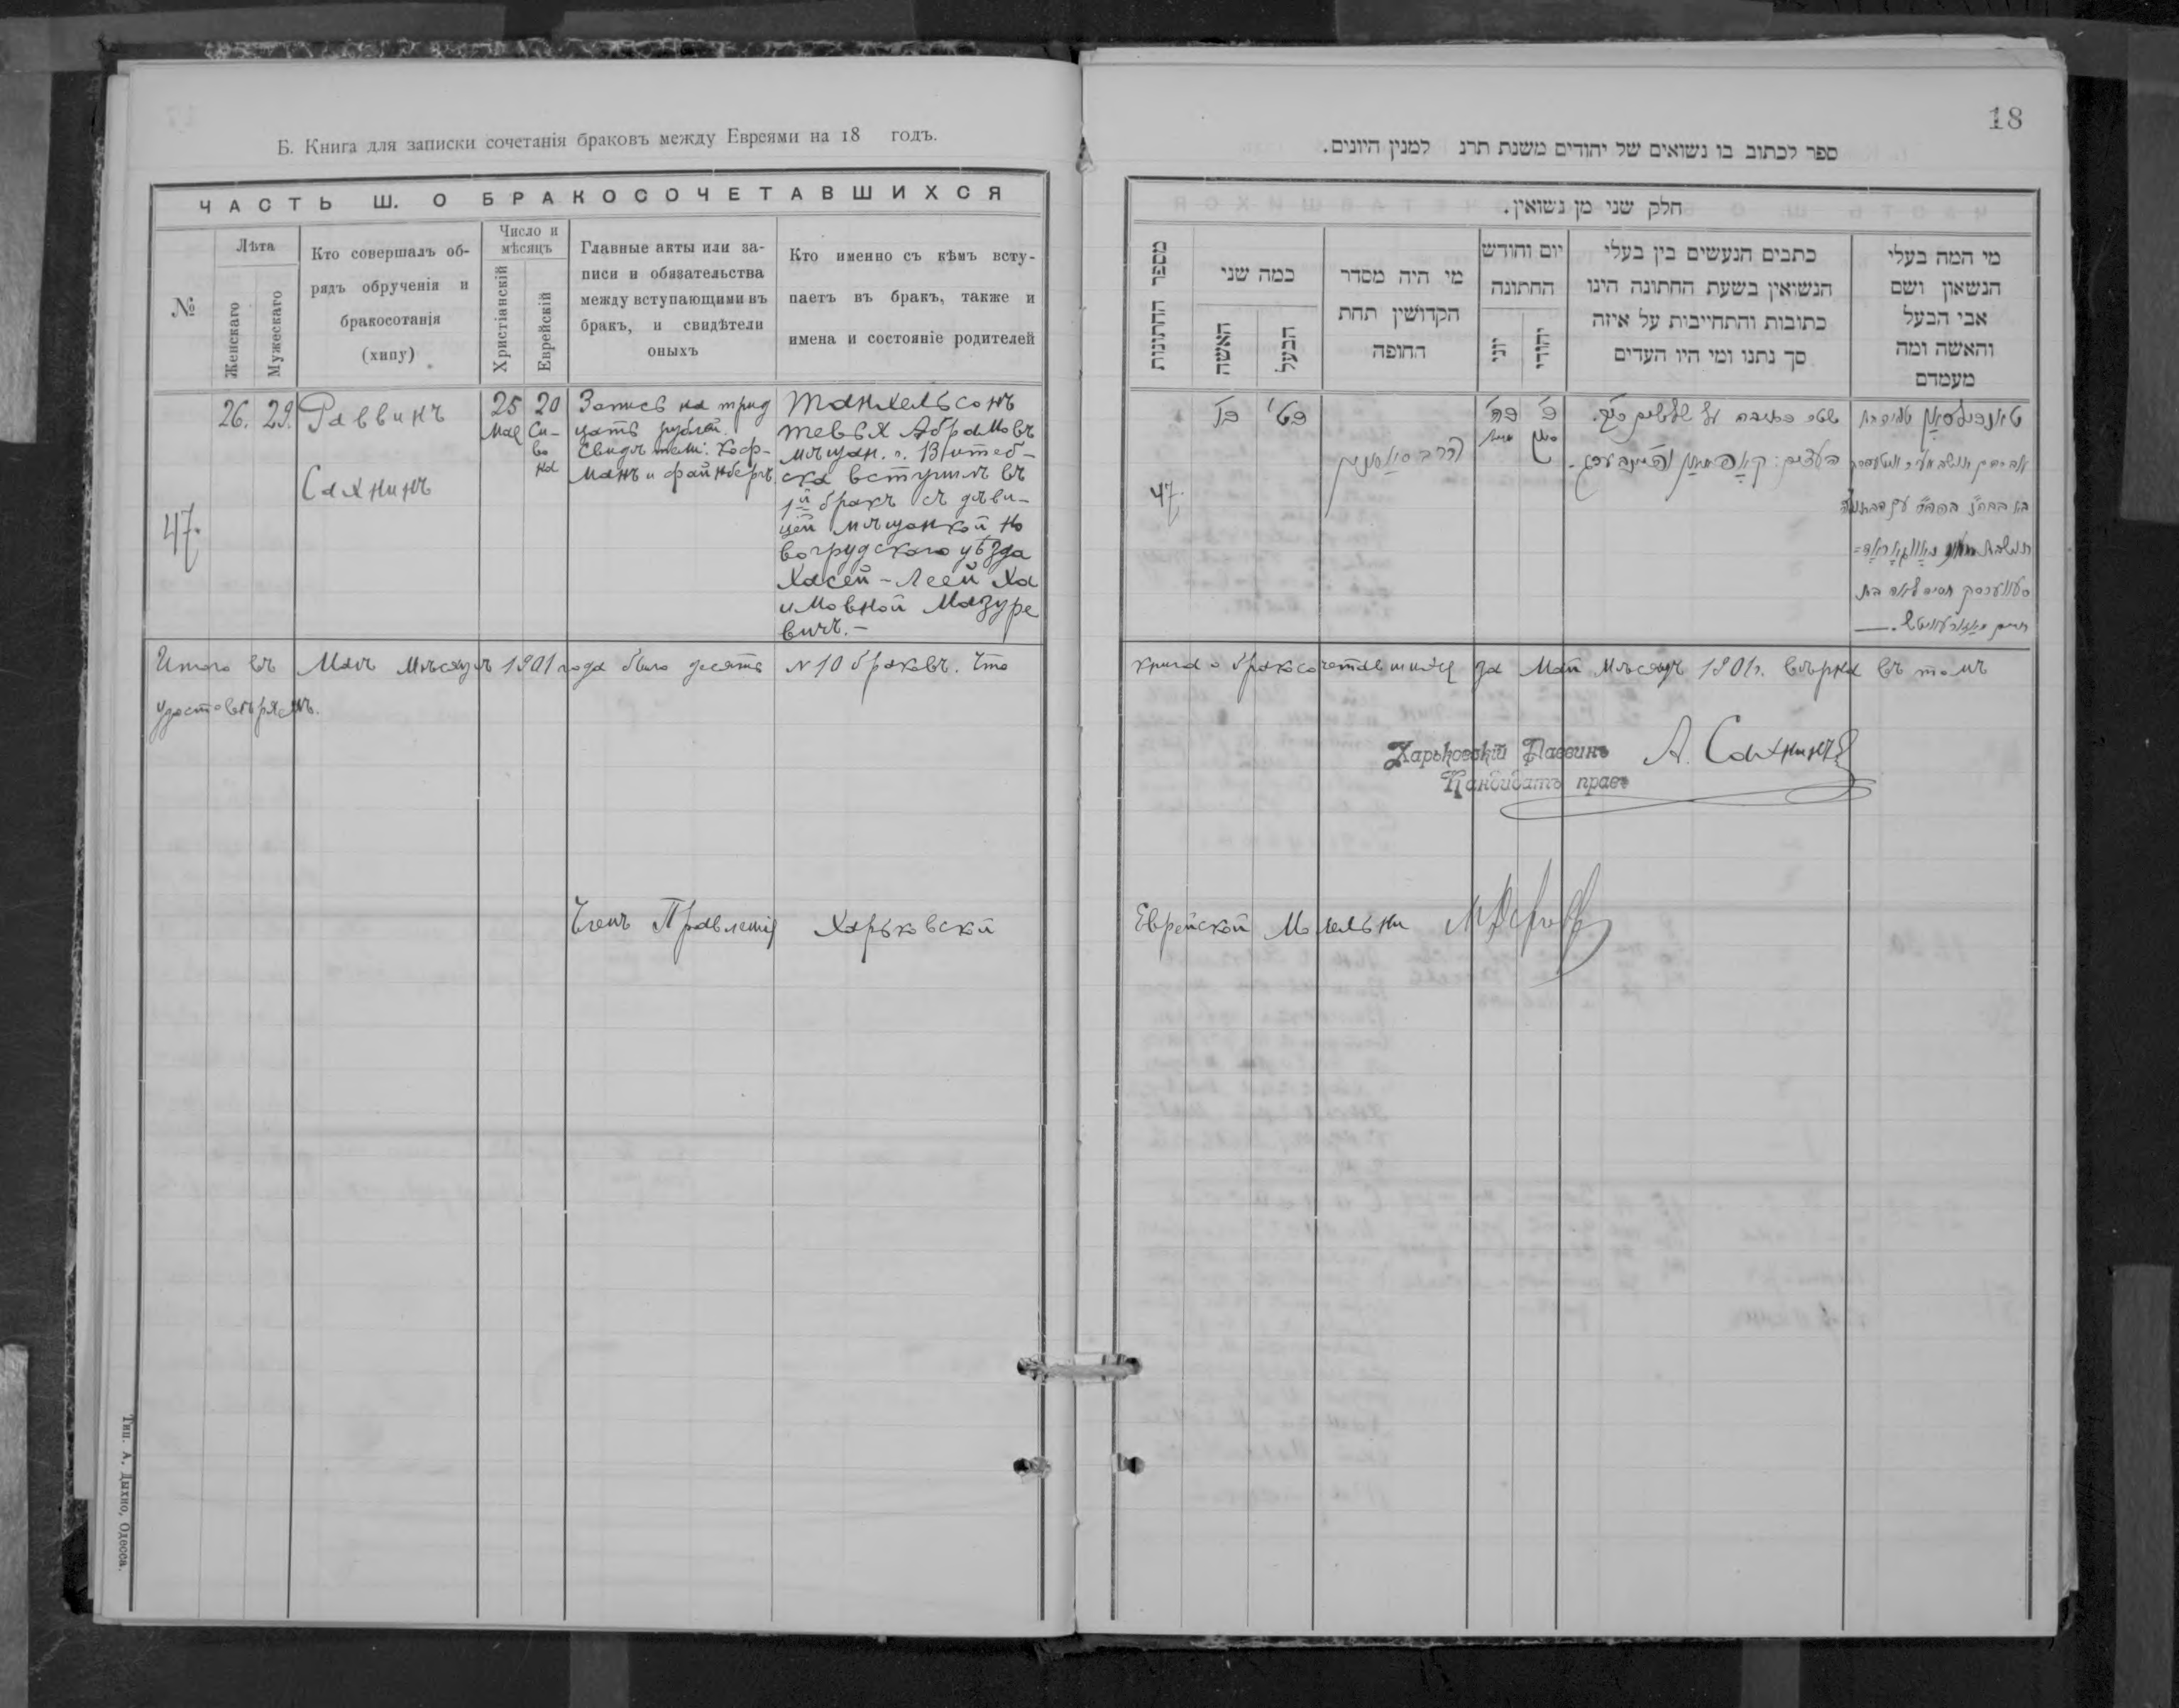 Б. Книга для записки сочетанія браковъ между Евреями на 18 годъ.
ЧАСТЬ Ш. О БРАКОСОЧЕТАВШИХСЯ
№
Лѣта
Женскаго
Мужескаго
Кто совершалъ об-
рядъ обрученія и
бракосотанія
(хипу)
Число и
мѣсяцъ
Христіанскій
Еврейскій
Главные акты или за-
писи и обязательства
между вступающими въ
бракъ, и свидѣтели
оныхъ
Кто именно съ кѣмъ всту-
паетъ въ бракъ, также и
имена и состояніе родителей
47.
26.
29.
Раввинъ
Сахнинъ
25
Мая
20
Си-
во
на
Запись на трид
цать рублей.
Свидѣтели: Коф-
манъ и Файнбергъ
Танхельсонъ
Тевья Абрамовъ
мѣщан. г. Витеб-
ска вступилъ въ
1й бракъ съ дѣви-
цей мѣщанкой Но
вогрудскаго уѣзда
Хасей-Леей Ха
имовной Мазуре
вичъ.-
Итого въ Маѣ мѣсяцѣ 1901 года было десять №10 браковъ. Что
удостовѣряемъ.
Членъ Правленія Харьковской
Тип. А. Дыхно, Одесса.
18
ספר לכתוב בו נשואים של יהודים משנת תרנ למנין היונים.
חלק שני מן נשואין.
מספר החתונות
כמה שני
האשה
הבעל
מי היה מסדר
הקדושין תחת
החופה
יום וחודש
החתונה
יוני
יהודי
כתבים הנעשים בין בעלי
הנשואין בשעת החתונה הינו
כתובות והתחייבות על איזה
סך נתנו ומי היו העדים
מי המה בעלי
הנשאון ושם
אבי הבעל
והאשה ומה
מעמדם
47.
כו'
כט'
הרב סאחנין
כה'
מאי
כ'
סיון
שטר כתובה על שלשים
העדים: קאפמאן
חיים מאזורעוויטש.
книга о бракосочетавшихся за Май мѣсяцъ 1901г. вѣрна въ томъ
Харьковскій Раввинъ А. Сахнинъ
Кандидатъ правъ
Еврейской Молельни